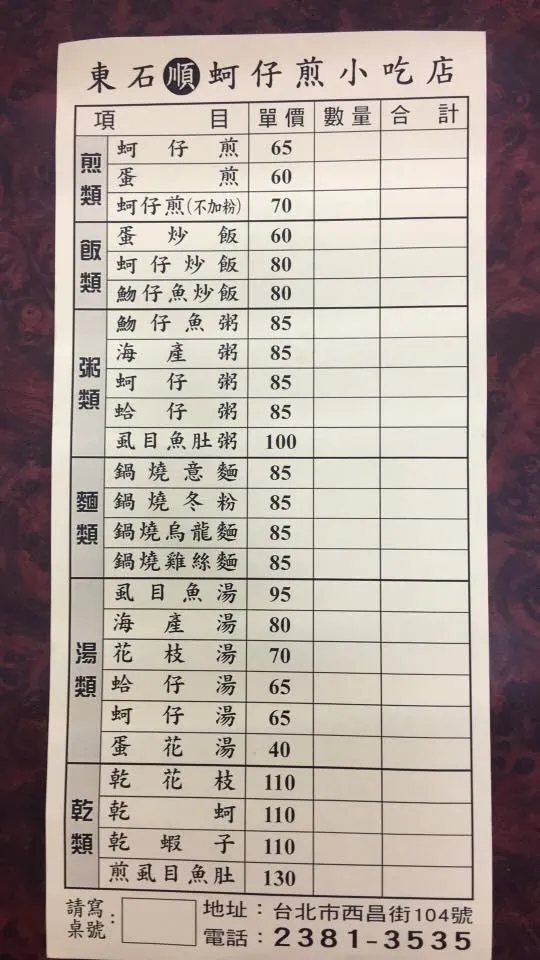 東石順蚵仔煎小吃店
項目 單價 數量 合計
煎類
蚵仔煎 65
蛋煎 60
蚵仔煎(不加粉) 70
飯類
蛋炒飯 60
蚵仔炒飯 80
魩仔魚炒飯 80
粥類
魩仔魚粥 85
海產粥 85
蚵仔粥 85
蛤仔粥 85
虱目魚肚粥 100
麵類
鍋燒意麵 85
鍋燒冬粉 85
鍋燒烏龍麵 85
鍋燒雞絲麵 85
湯類
虱目魚湯 95
海產湯 80
花枝湯 70
蛤仔湯 65
蚵仔湯 65
蛋花湯 40
乾類
乾花枝 110
乾蚵 110
乾蝦子 110
煎虱目魚肚 130
請寫桌號:
地址:台北市西昌街104號
電話:2381-3535